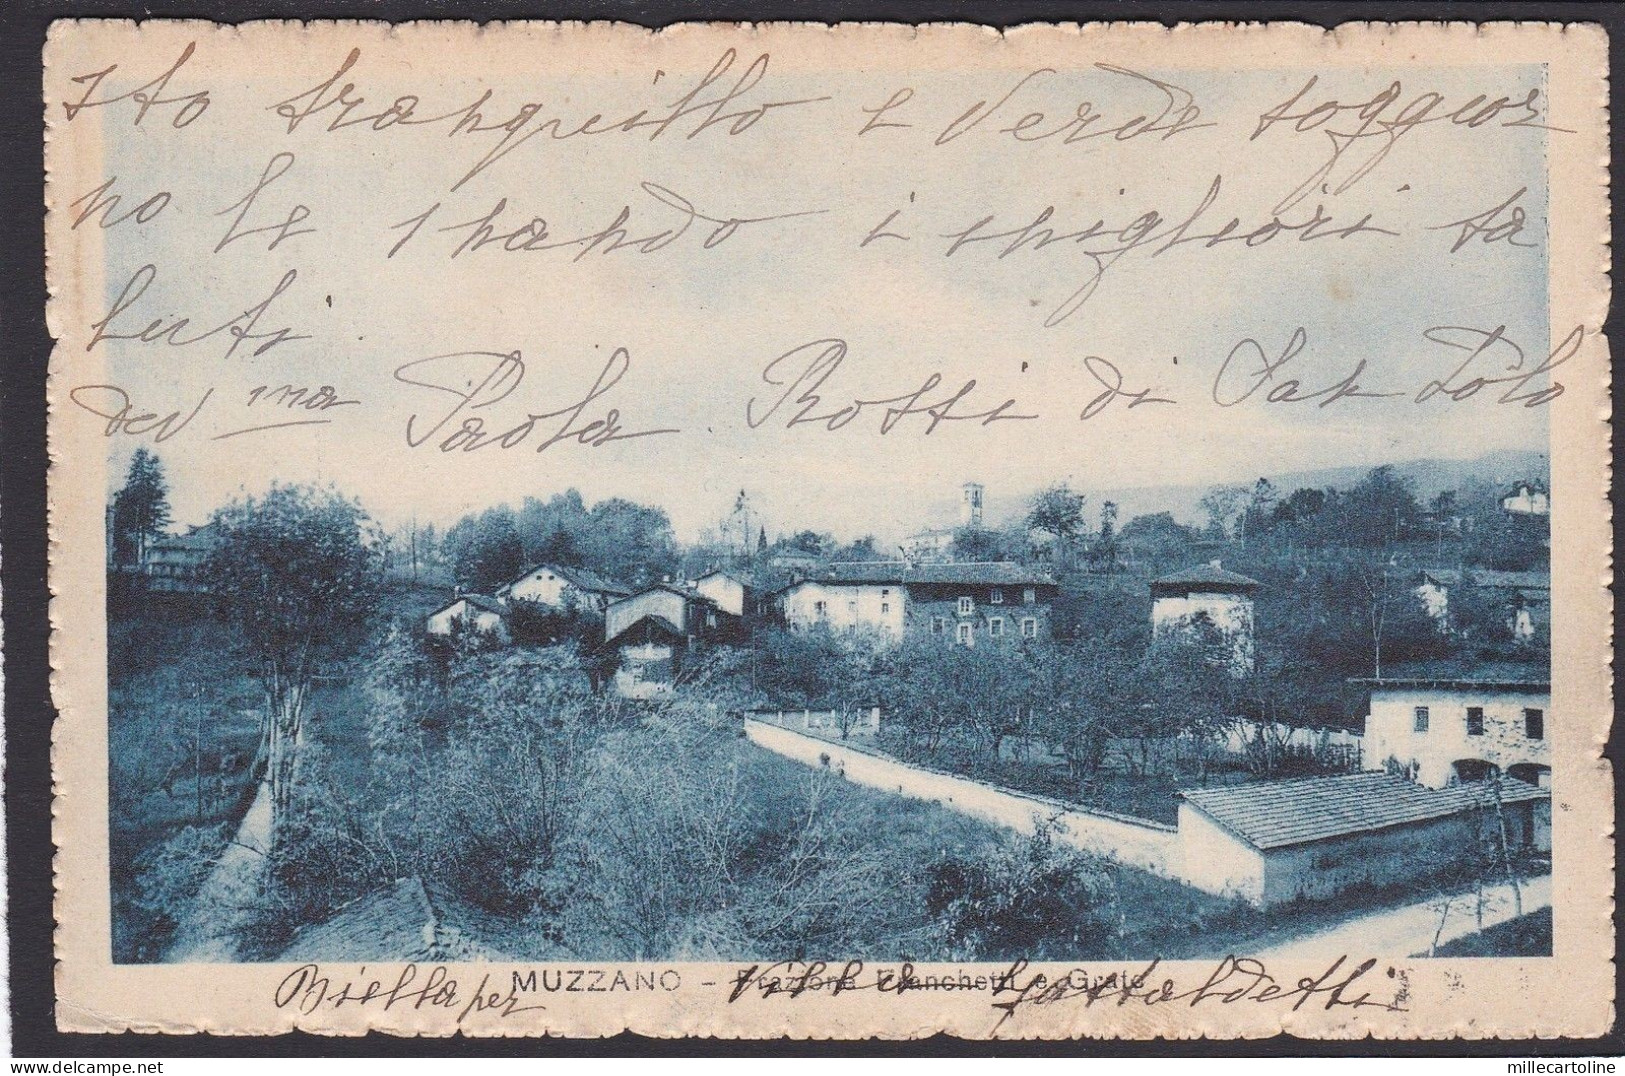 Dal tranquillo e verde soggior
no le mando i migliori sa
luti.
dev ma Paola Rossi di San Polo
MUZZANO - Frazione Franchetti e Grate
Biella per Villa Gastaldetti
www.millecartoline.com